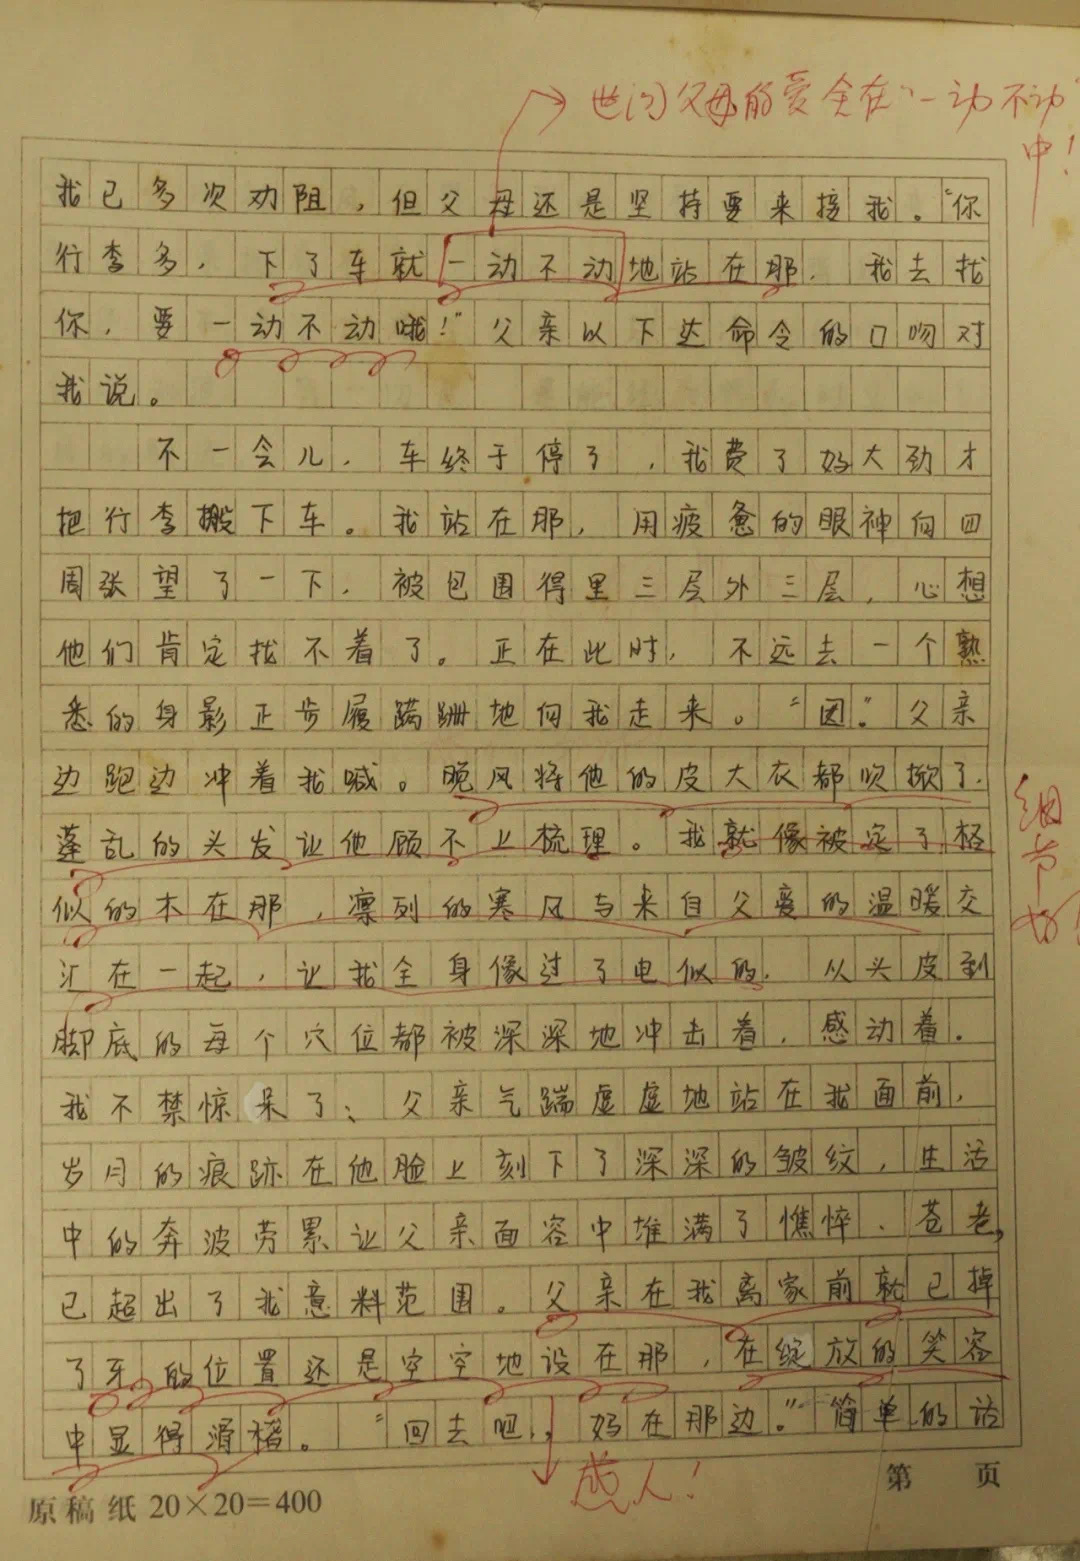 世间父母的爱全在"一动不动"
中!
我已多次劝阻,但父母还是坚持要来接我。"你
行李多,下了车就一动不动地站在那,我去找
你,要一动不动哦!"父亲以下达命令的口吻对
我说。
不一会儿,车终于停了,我费了好大劲才
把行李搬下车。我站在那,用疲惫的眼神向四
周张望了一下,被包围得里三层外三层,心想
他们肯定找不着了。正在此时,不远去一个熟
悉的身影正步履蹒跚地向我走来。"囡。"父亲
边跑边冲着我喊。晚风将他的皮大衣都吹掀了,
蓬乱的头发让他顾不上梳理。我就像被定了格
似的木在那,凛冽的寒风与来自父爱的温暖交
汇在一起,让我全身像过了电似的,从头皮到
脚底的每个穴位都被深深地冲击着,感动着。
我不禁惊呆了:父亲气踹虚虚地站在我面前,
岁月的痕跡在他脸上刻下了深深的皱纹,生活
中的奔波劳累让父亲面容中堆满了憔悴、苍老,
已超出了我意料范围。父亲在我离家前就已掉
了牙的位置还是空空地设在那,在绽放的笑容
中显得滑稽。"回去吧,妈在那边。"简单的话
细节好
感人!
原稿纸 20×20=400
第 页